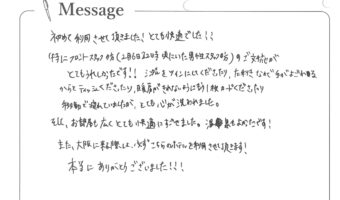 Message
初めて利用させて頂きました！とても快適でした！！
(特にフロントスタッフ様(2月6日22時頃にいた男性スタッフの方)のご対応が
とてもうれしかったです！！シングルをツインにしてくださり、たおれ
からとティッシュくださったり、暖房がきれないように もう1枚 くださったり
移動で疲れていましたが、とても心が洗われました。
そして、お部屋も広くとても快適にすごせました。温泉もよかったです！
また、大阪に来る際は、必ずこちらのホテルを利用させて頂きます！
本当にありがとうございました！！！